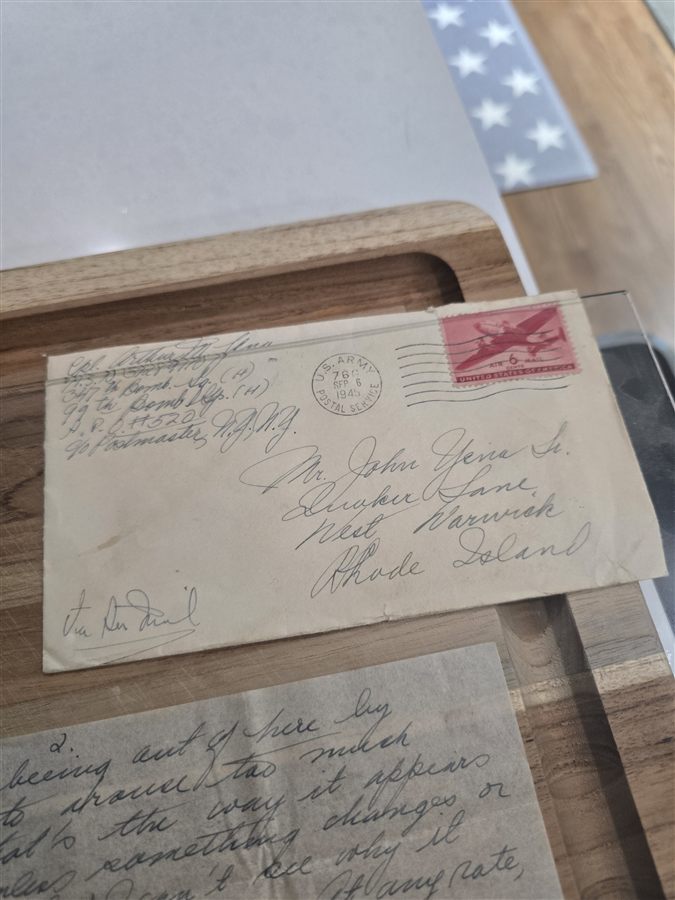 Cpl. Arthur Yena
347th Bomb. Sq. (H)
99th Bomb Grp. (H)
A.P.O. #520
c/o Postmaster, N.Y., N.Y.
U.S. ARMY
766
SEP 6
1945
POSTAL SERVICE
AIR 6¢ MAIL
UNITED STATES OF AMERICA
Mr. John Yena Sr.
Quaker Lane,
West Warwick
Rhode Island
Via Air Mail
2.
beeing out of here by
to arouse too much
the way it appears
something changes or
can't see why it
At any rate,